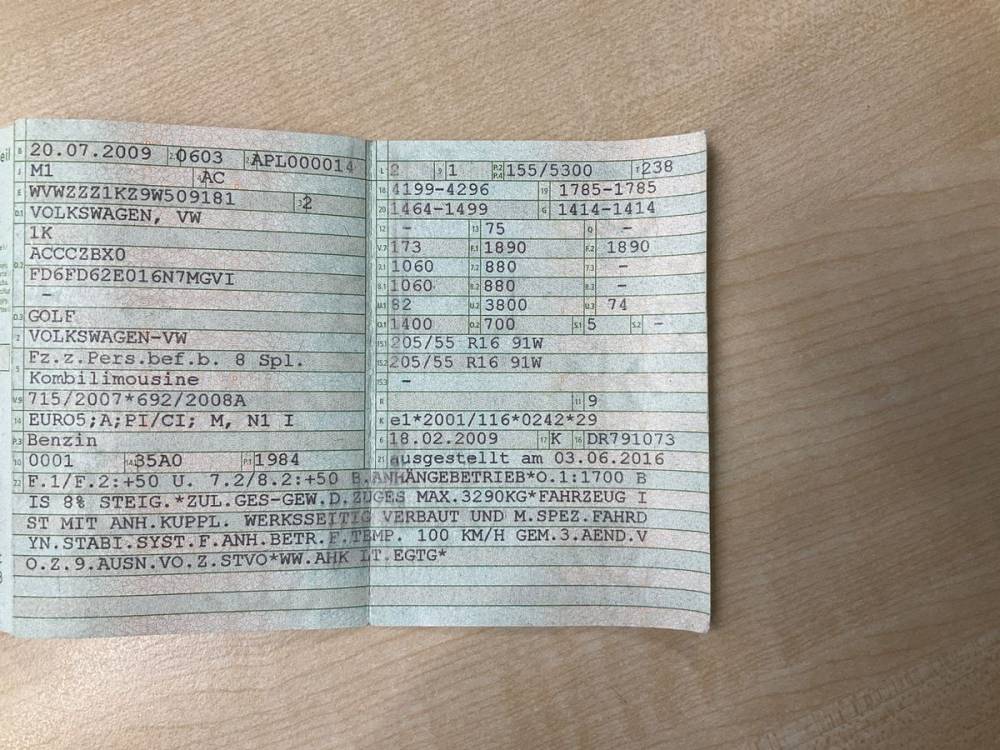 eil
B 20.07.2009 0603 APL000014
J M1 AC
E WVWZZZ1KZ9W509181 3 2
D.1 VOLKSWAGEN, VW
1K
ACCCZBX0
D.2
FD6FD62E016N7MGVI
-
D.3 GOLF
2 VOLKSWAGEN-VW
5 Fz.z.Pers.bef.b. 8 Spl.
Kombilimousine
V.9 715/2007*692/2008A
14 EURO5;A;PI/CI; M, N1 I
P.3 Benzin
10 0001 35A0 P.1 1984
L 2 9 1 P.2 P.4 155/5300 T 238
18 4199-4296 19 1785-1785
20 1464-1499 G 1414-1414
12 - 13 75 Q -
V.7 173 F.1 1890 F.2 1890
7.1 1060 7.2 880 7.3 -
8.1 1060 8.2 880 8.3 -
U.1 82 U.2 3800 U.3 74
O.1 1400 O.2 700 S.1 5 S.2 -
15.1 205/55 R16 91W
15.2 205/55 R16 91W
15.3 -
R 11 9
K e1*2001/116*0242*29
6 18.02.2009 17 K 16 DR791073
21 ausgestellt am 03.06.2016
22 F.1/F.2:+50 U. 7.2/8.2:+50 B.ANHÄNGEBETRIEB*O.1:1700 B
IS 8% STEIG.*ZUL.GES-GEW.D.ZUGES MAX.3290KG*FAHRZEUG I
ST MIT ANH.KUPPL. WERKSSEITIG VERBAUT UND M.SPEZ.FAHRD
YN.STABI.SYST.F.ANH.BETR.F.TEMP. 100 KM/H GEM.3.AEND.V
O.Z.9.AUSN.VO.Z.STVO*WW.AHK LT.EGTG*